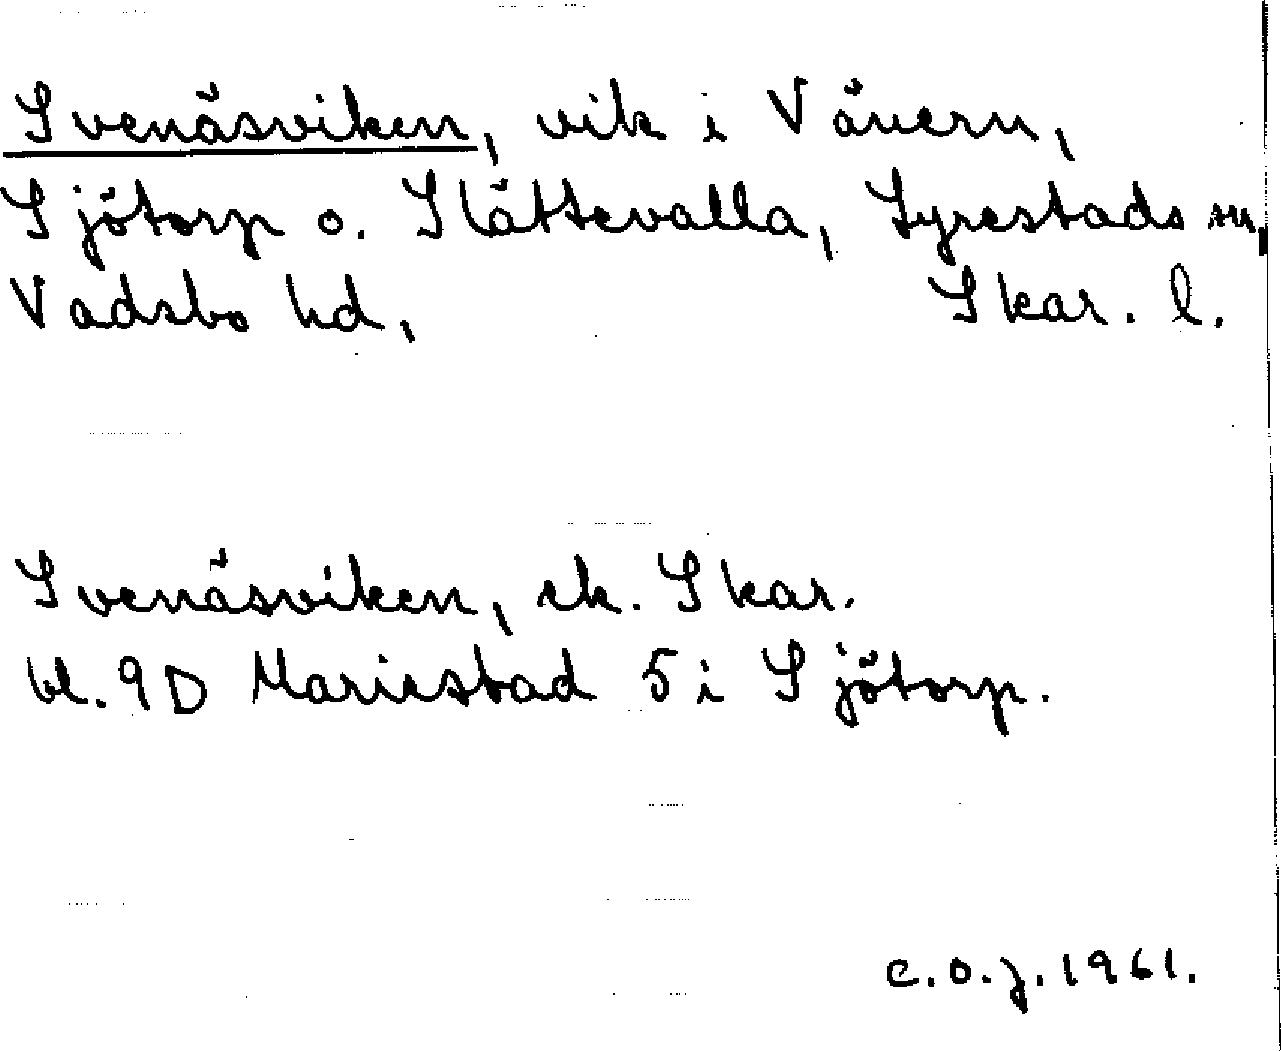 Svenäsviken, vik i Vänern,
Sjötorp o. Slättevalla, Lyrestads sn,
Vadsbo hd, Skar. l.
Svenäsviken, ek. Skar.
bl. 9D Mariestad 5 i Sjötorp.
C.O.J. 1961.